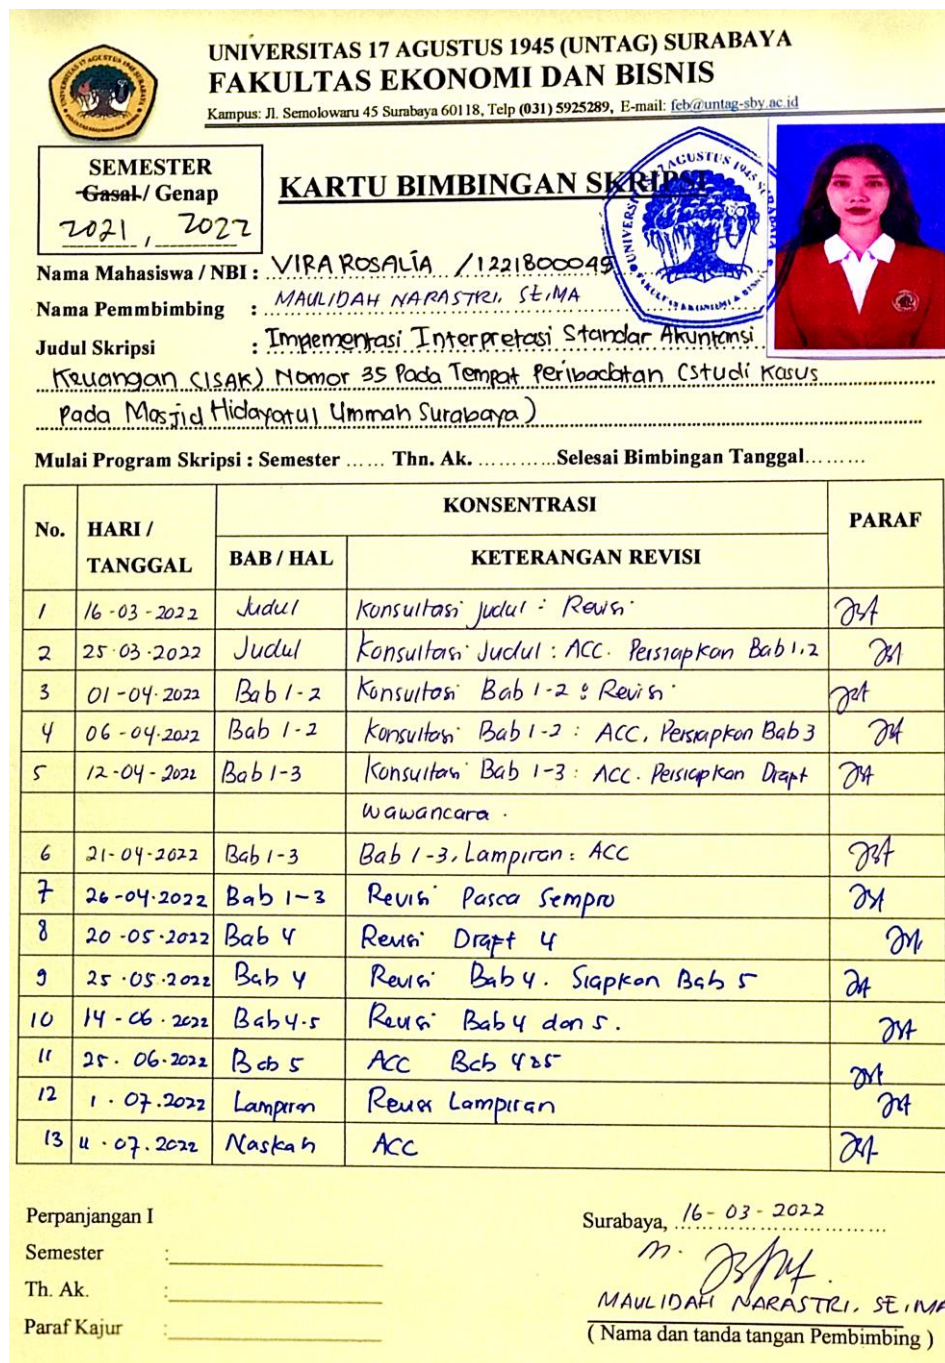 UNIVERSITAS 17 AGUSTUS 1945 (UNTAG) SURABAYA
FAKULTAS EKONOMI DAN BISNIS
Kampus: Jl. Semolowaru 45 Surabaya 60118, Telp (031) 5925289, E-mail: feb@untag-sby.ac.id
SEMESTER
Gasal / Genap
2021, 2022
KARTU BIMBINGAN SKRIPSI
Nama Mahasiswa / NBI : VIRA ROSALIA / 1221800045
Nama Pemmbimbing : MAULIDAH NARASTRI. SE, MA
Judul Skripsi : Impementasi Interpretasi Standar Akuntansi
Keuangan (ISAK) Nomor 35 Pada Tempat Peribadatan (Studi Kasus
Pada Masjid Hidayatul Ummah Surabaya)
Mulai Program Skripsi : Semester ...... Thn. Ak. ............Selesai Bimbingan Tanggal.........
No. HARI / TANGGAL KONSENTRASI PARAF
BAB / HAL KETERANGAN REVISI
1 16-03-2022 Judul Konsultasi Judul : Revisi
2 25-03-2022 Judul Konsultasi Judul : ACC. Persiapkan Bab 1,2
3 01-04-2022 Bab 1-2 Konsultasi Bab 1-2 : Revisi
4 06-04-2022 Bab 1-2 Konsultasi Bab 1-2 : ACC, Persiapkan Bab 3
5 12-04-2022 Bab 1-3 Konsultasi Bab 1-3 : ACC. Persiapkan Drapt
wawancara.
6 21-04-2022 Bab 1-3 Bab 1-3, Lampiran : ACC
7 26-04-2022 Bab 1-3 Revisi Pasca Sempro
8 20-05-2022 Bab 4 Revisi Drapt 4
9 25-05-2022 Bab 4 Revisi Bab 4. Siapkan Bab 5
10 14-06-2022 Bab 4-5 Revisi Bab 4 dan 5.
11 25-06-2022 Bab 5 ACC Bab 4&5
12 1-07-2022 Lampiran Revisi Lampiran
13 11-07-2022 Naskah ACC
Perpanjangan I
Semester :
Th. Ak. :
Paraf Kajur :
Surabaya, 16-03-2022
MAULIDAH NARASTRI. SE, MA
( Nama dan tanda tangan Pembimbing )